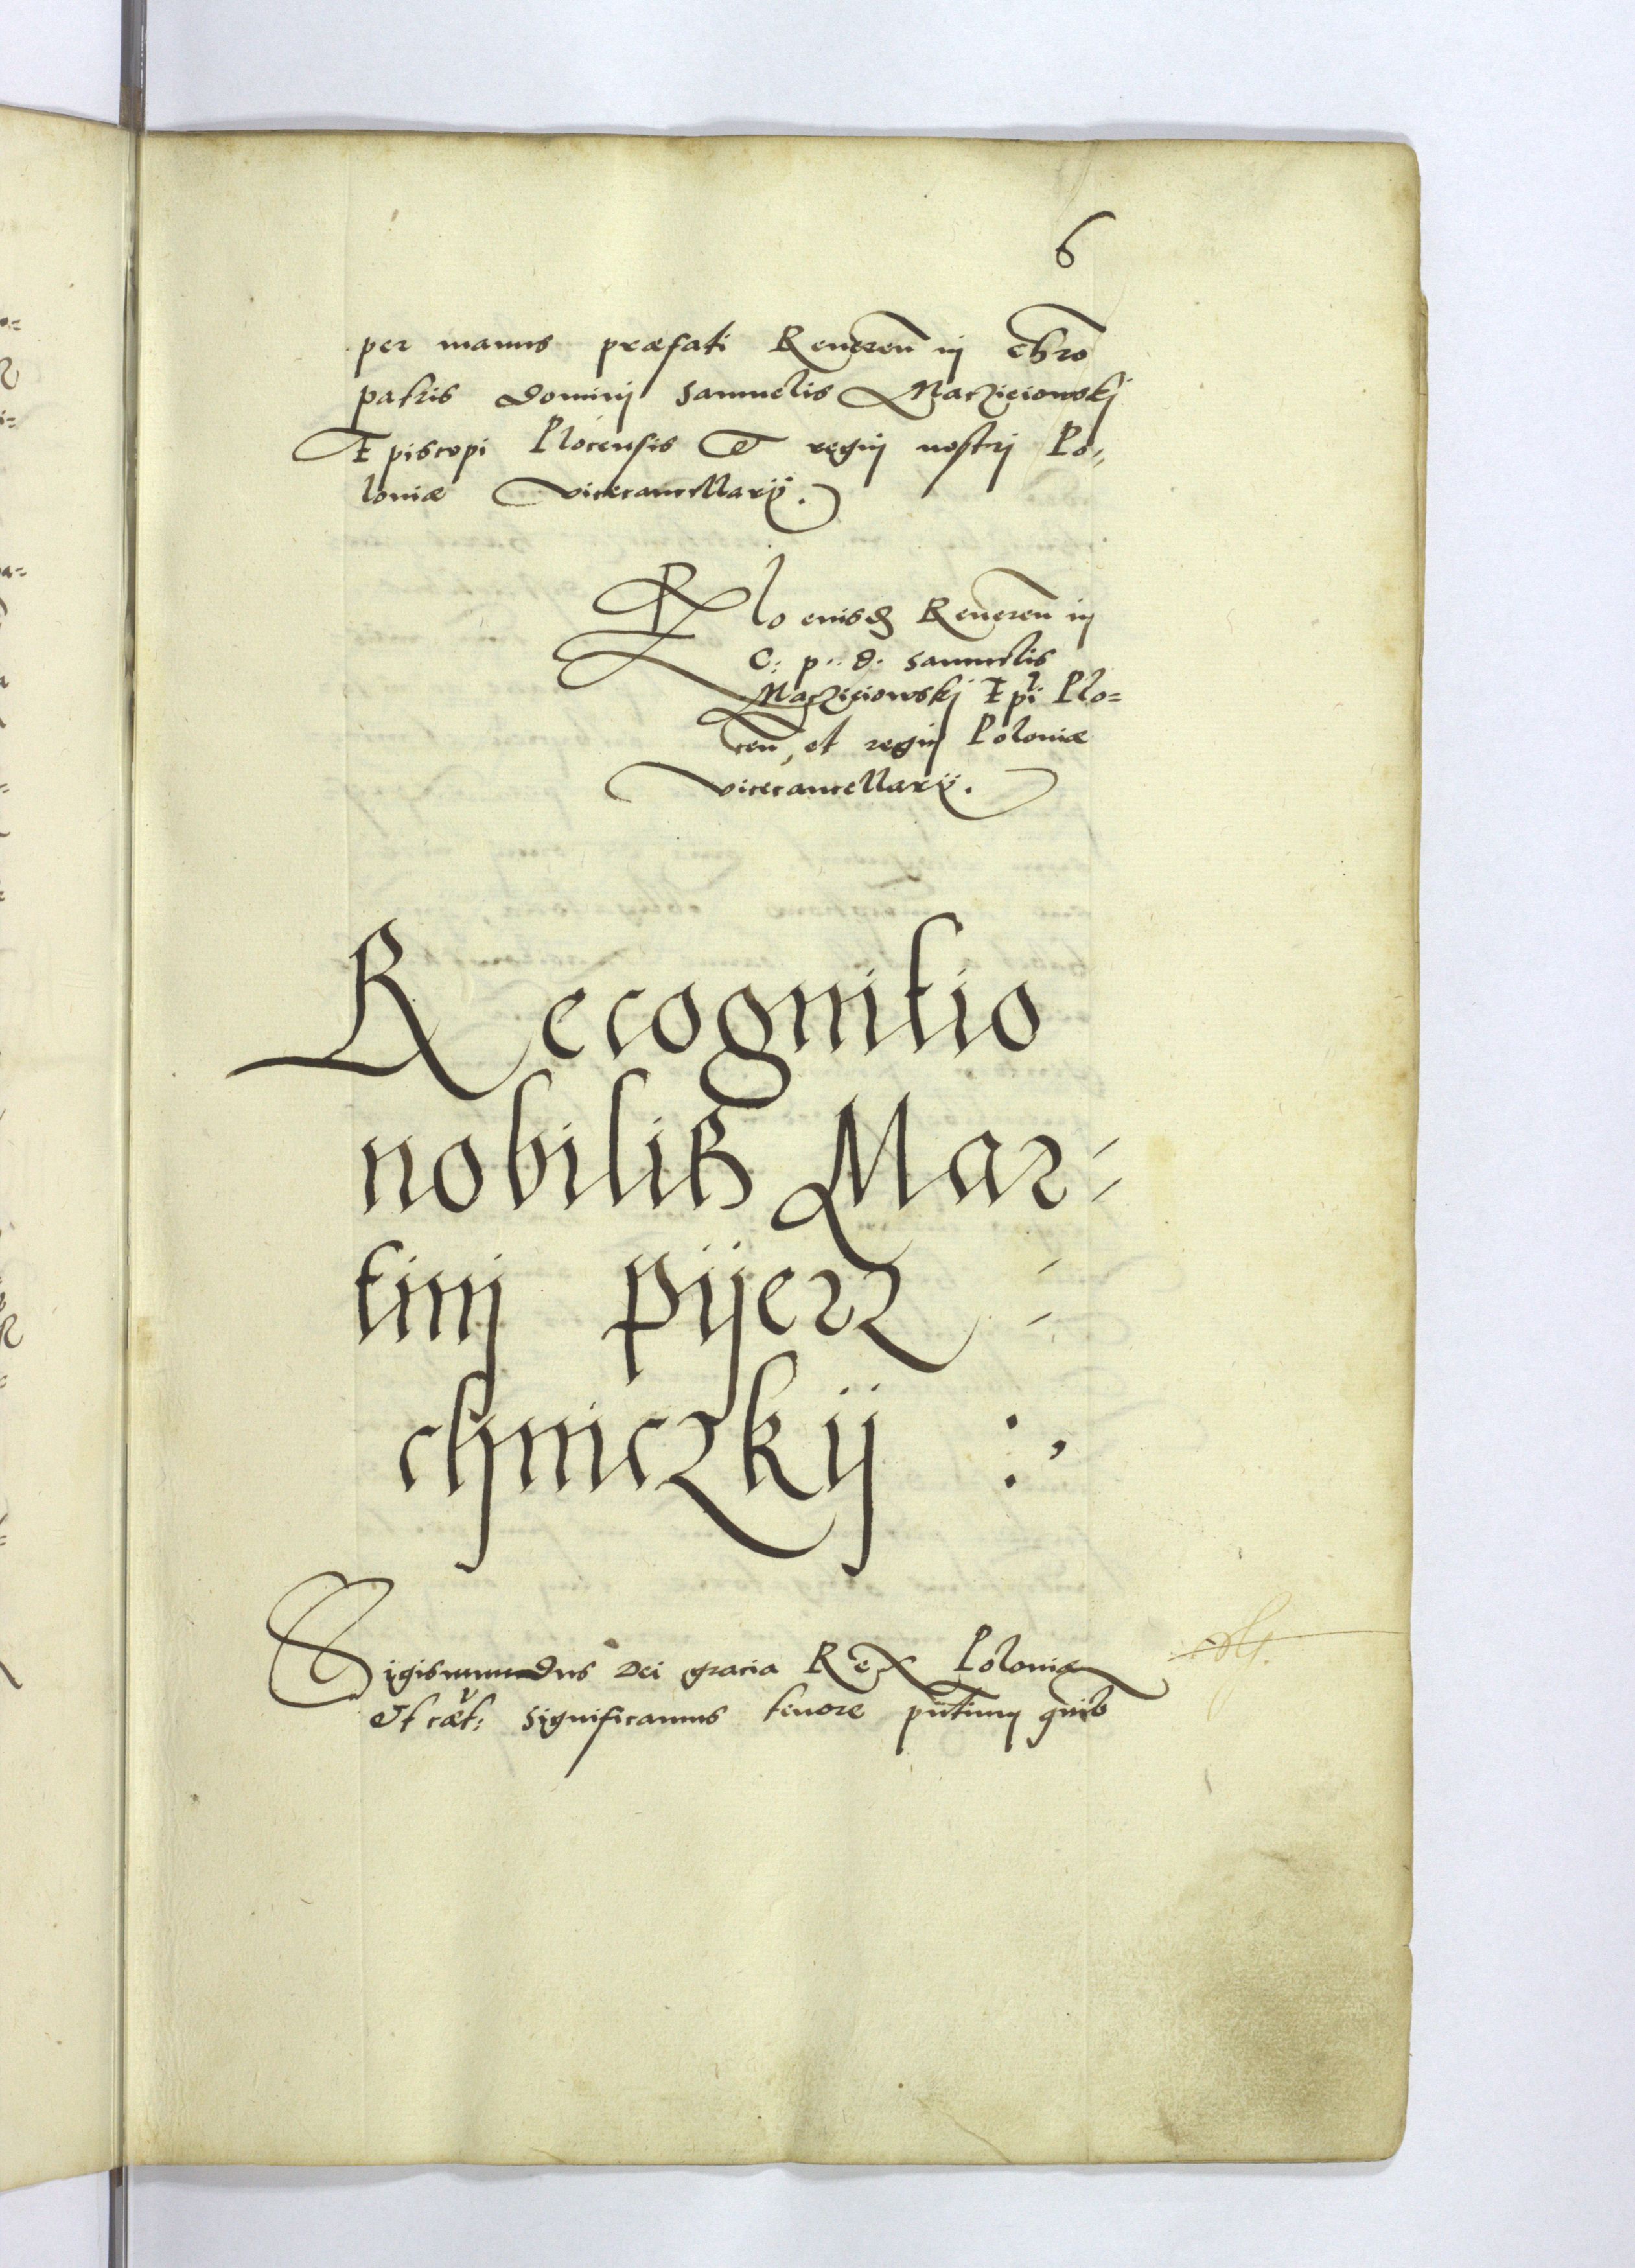 6
per manus præfati Reueren in chro
patris dominj Samuelis Maczieiowskj
Episcopi Plocensis et regnj nostrj Po,,
loniæ vicecancellarij.
Rlo eiusd Reueren in
C: p: d. Samuelis
Maczieiowskj Epi Plo=
cen, et regnj Poloniæ
vicecancellarij.
Recognitio
nobilis Mar=
tinj pijerz=
chniczkij :,
Sigismundus Dei gracia Rex Poloniæ
Et cæt: Significamus tenore pntium quib